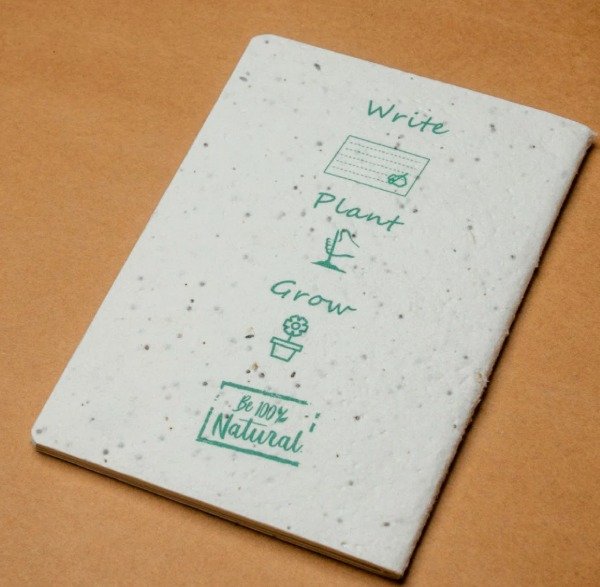 Write
Plant
Grow
Be 100%
Natural